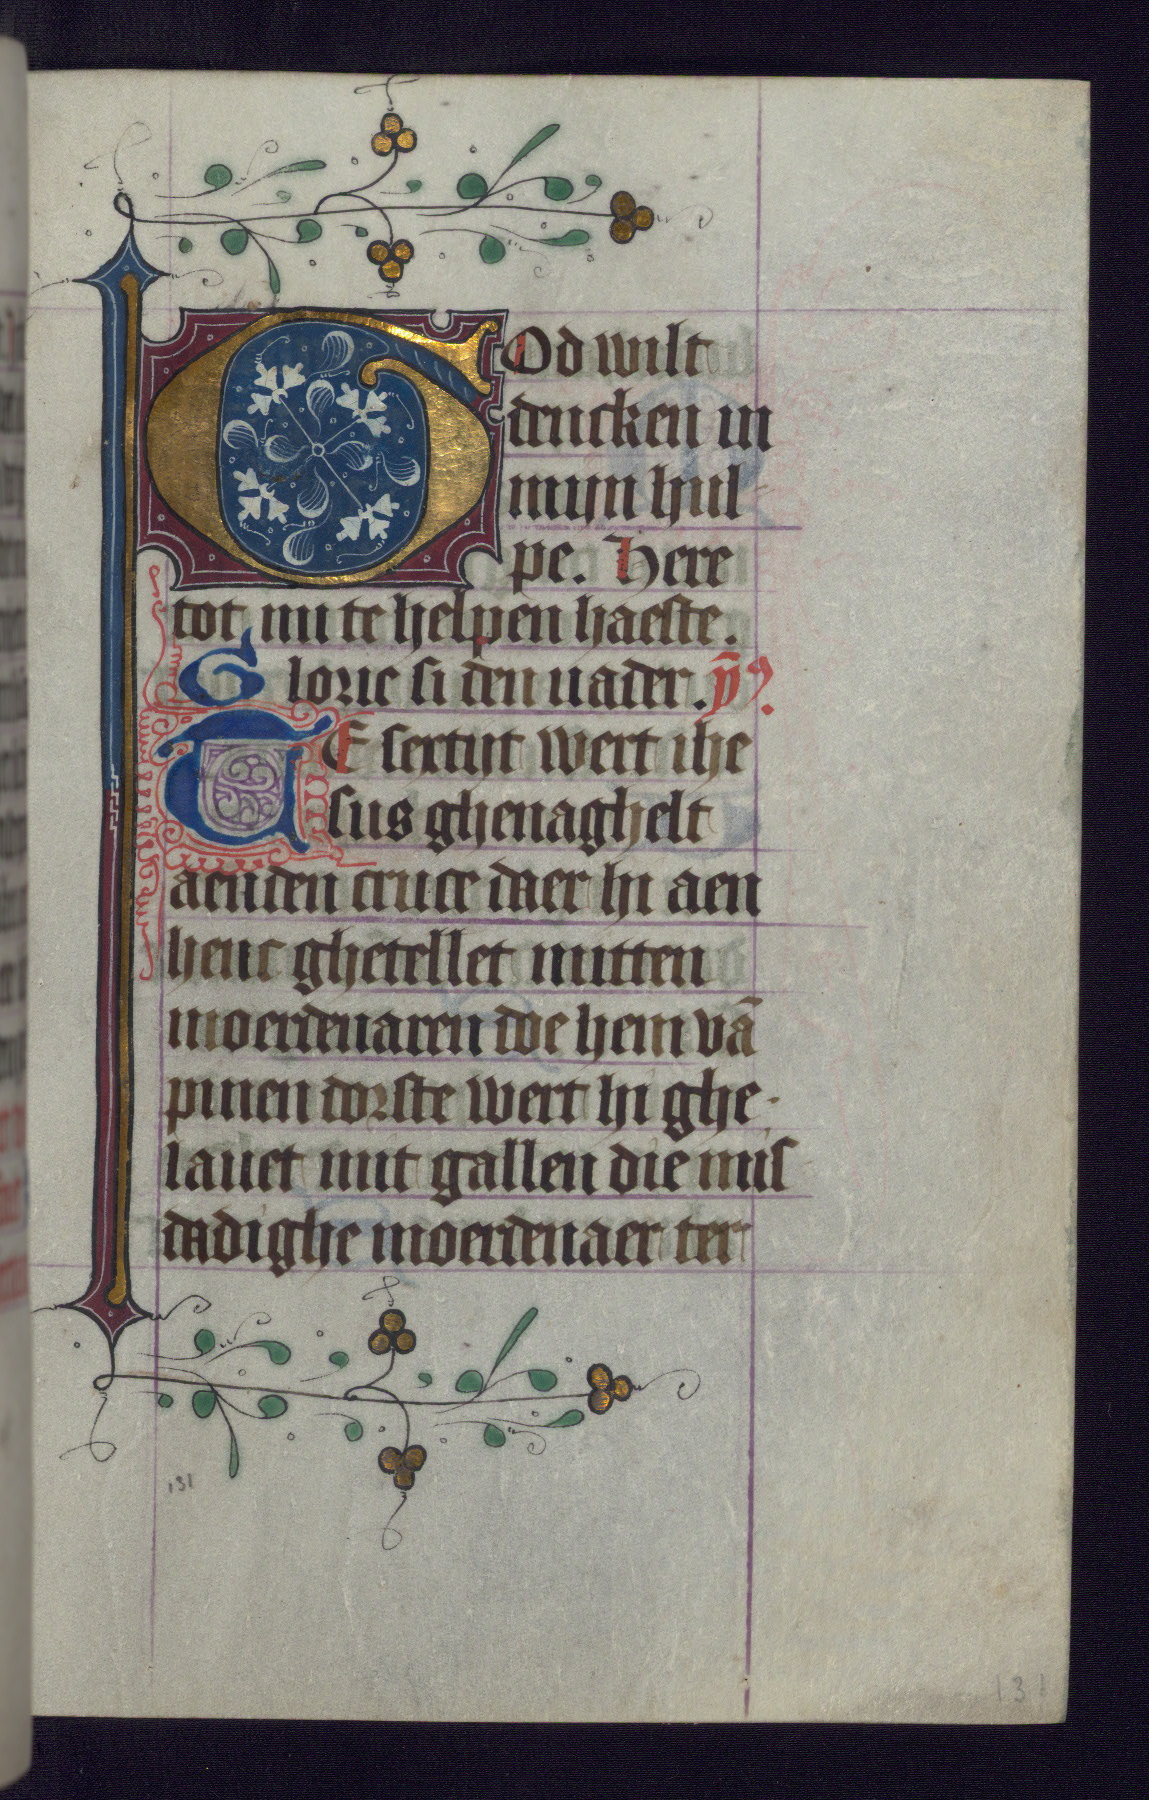 GOd wilt
dencken in
mijn hul
pe. Here
tot mi te helpen haeste.
Glorie si den uader. ym̄
TE sextijt wert ihe
sus ghenaghelt
aen den cruce daer hi aen
henc ghetellet mitten
moerdenaren doe hem vā
pinen dorste wert hi ghe
lauet mit gallen die mis
dadighe moerdenaer ter
131
131